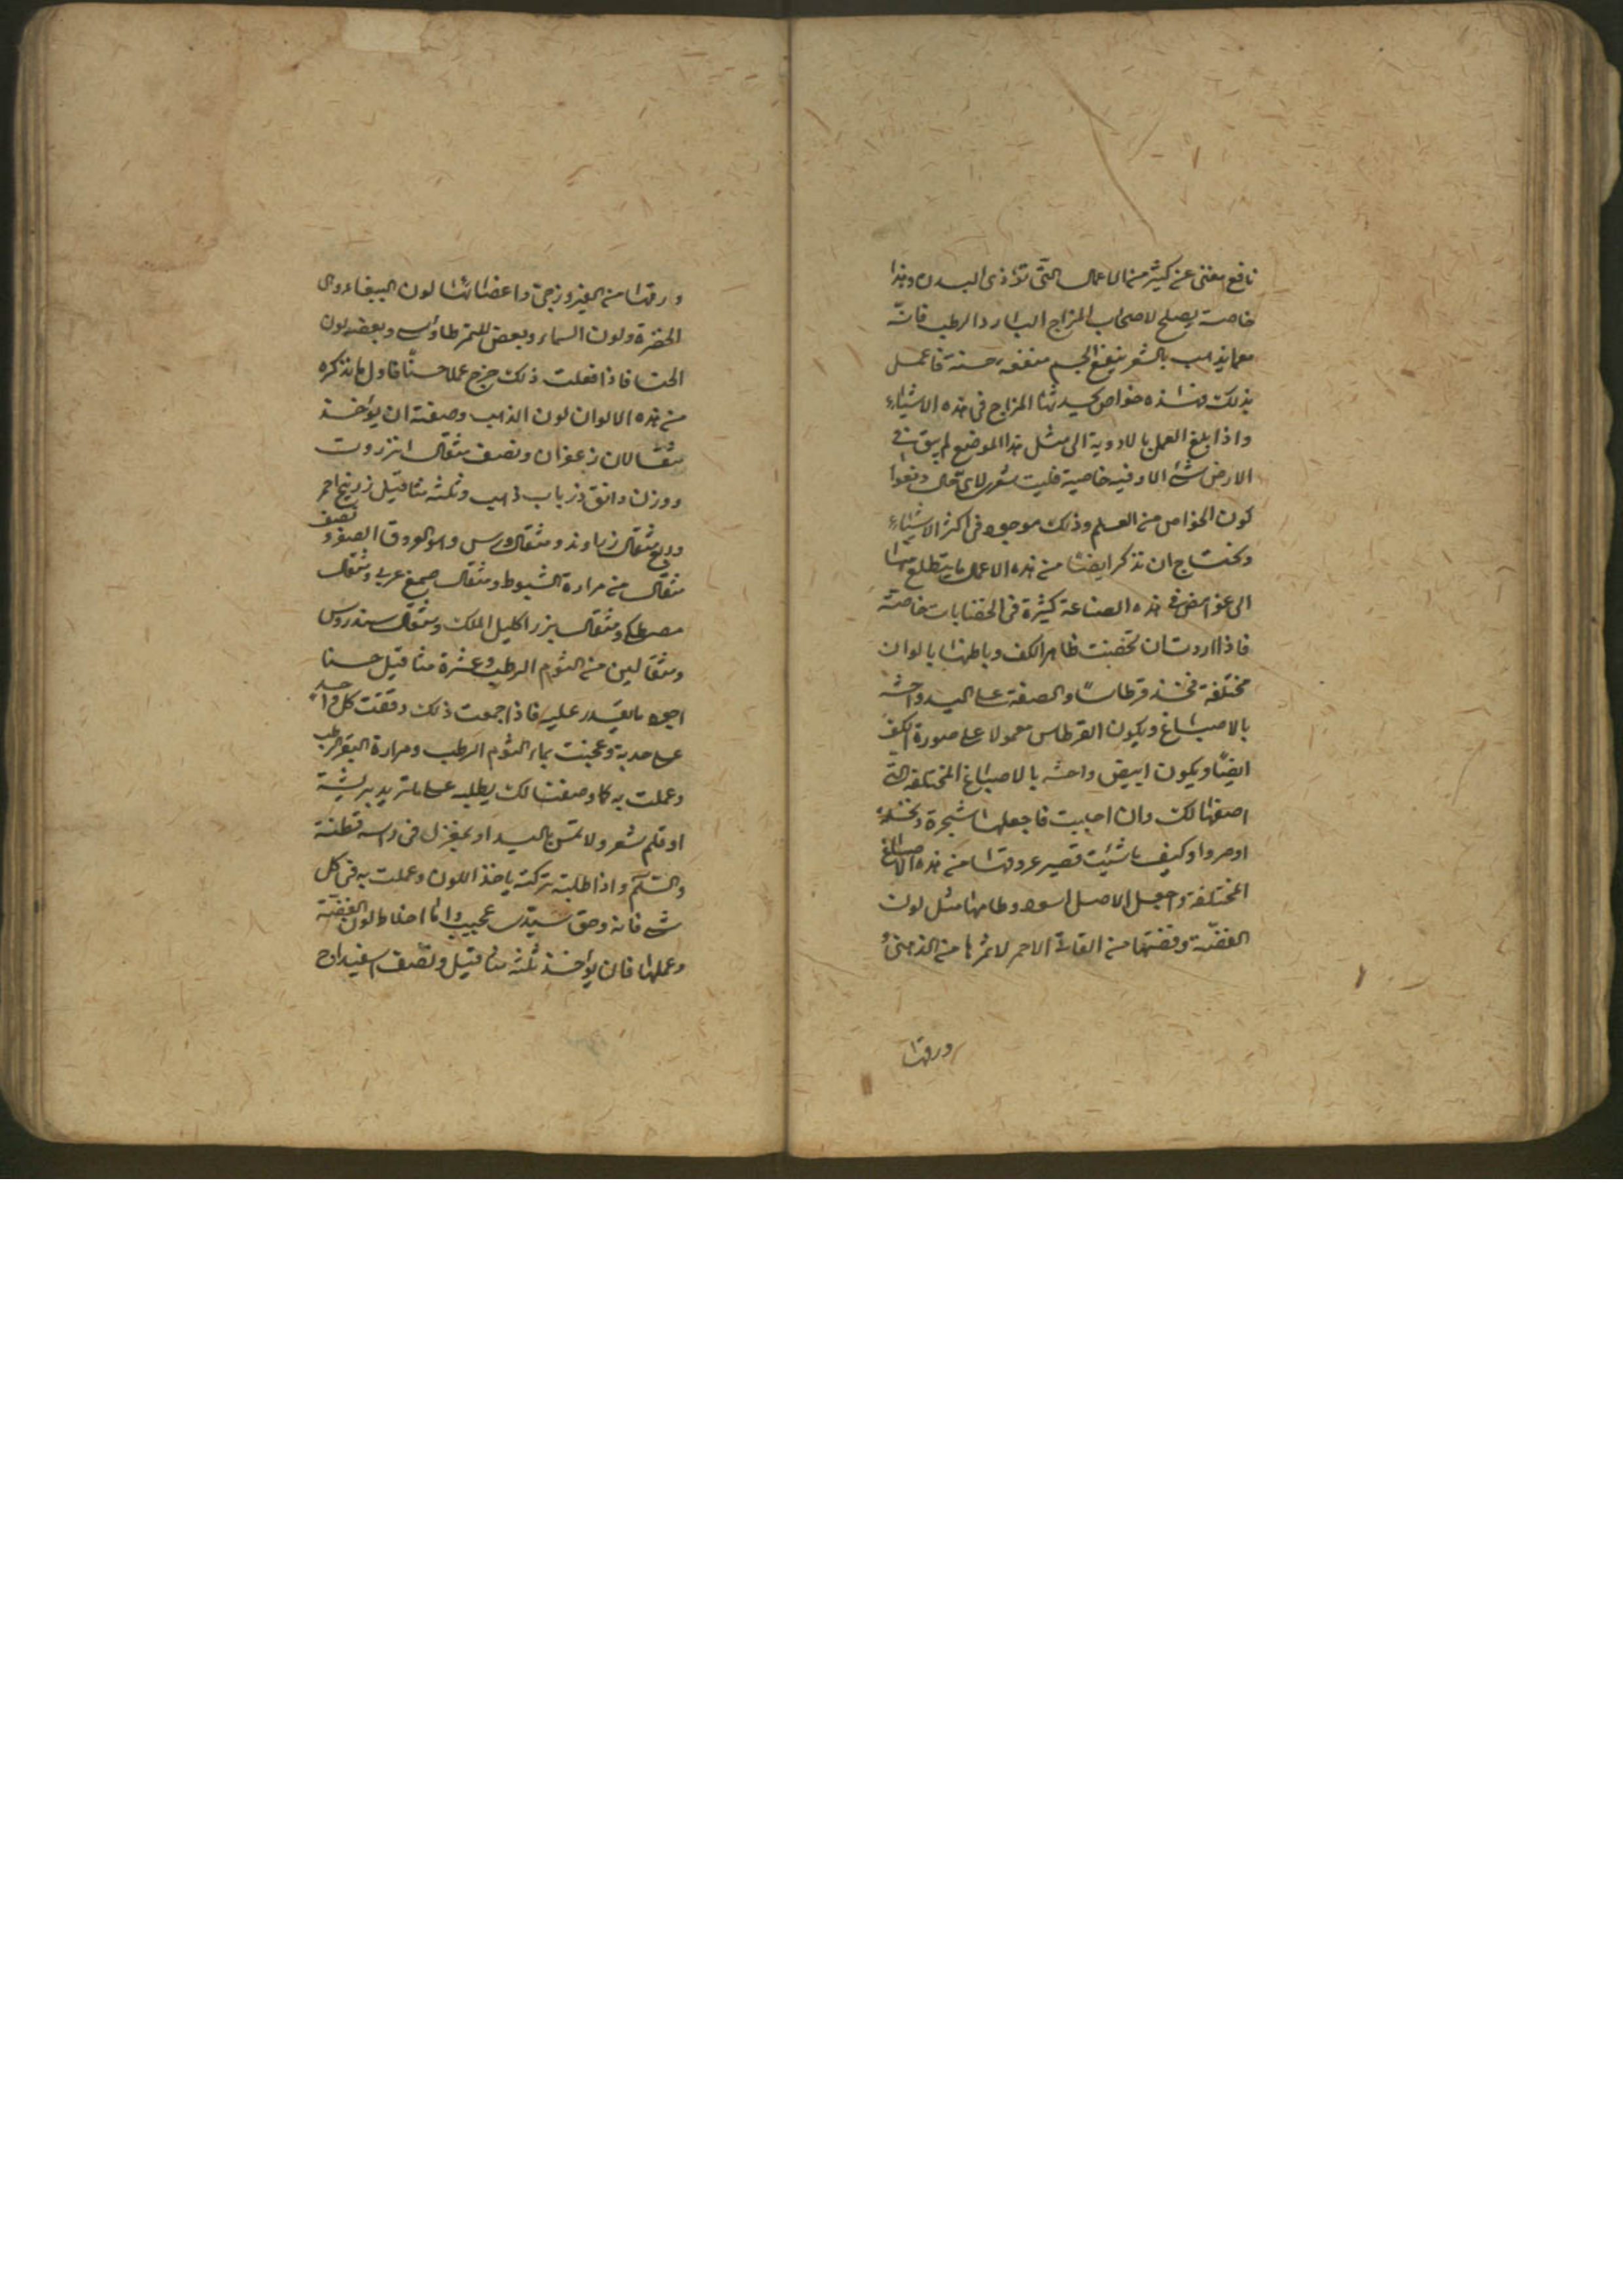 نافع مغنى عن كثير من الاعمال التى تؤذى البدن وهذا
خاصة يصلح لاصحاب المزاج البارد الرطب فانّه
مما يذهب بالشعر ينفع الجسم منفعة حسنة فاعمل
بذلك خواص المزاج فى هذه الاشياء
واذا بلغ العمل بالادوية الى مثل هذا الموضع لم يبق فى
الارض شئ الا وفيه خاصية فليت شعرى لاى حال دفعوا
كون الخواص من العلم وذلك موجود فى اكثر الاشياء
ونحتاج ان نذكر ايضا من هذه الاعمال ما يتطلع منها
الى غوامض فى هذه الصناعة كثيرة فى الخضابات خاصة
فاذا اردت ان تخضب ظاهر الكف وباطنها بالوان
مختلفة فخذ قرطاسا والصقه على اليد واحشه
بالاصباغ ويكون القرطاس معمولا على صورة الكف
ايضا ويكون ابيض واحشه بالاصباغ المختلفة التى
اصفها لك وان احببت فاجعلها شجرة
او كيف ما شئت فصير عروقها من هذه الاصباغ
المختلفة واجعل الاصل اسود وطامها مثل لون
الفضّة من الاحمر من الذهبى و
ورقها
ورقها من الفيروزجى واعضائها لون الببغاء والى
الخضرة ولون السماء وبعض للثمر طاوسى وبعضه لون
الحنا فاذا فعلت ذلك خرج عملا حسنا فاول ما نذكره
من هذه الالوان لون الذهب وصفته ان يؤخذ
مثقالان زعفران ونصف مثقال انزروت
ووزن دانق زرباب ذهب وثلثه مثاقيل زرنيخ احمر
وربع مثقال زراوند ومثقال ورس وهو العروق الصفر ونصف
مثقال من مرارة الشبوط ومثقال صمغ عربى ومثقال
مصطكى ومثقال بزر اكليل الملك ومثقال سندروس
ومثقالين من الثوم الرطب وعشرة مثاقيل حنا
اجود ما يقدر عليه فاذا جمعت ذلك دققت كل واحد
على حدته وعجنت بماء الثوم الرطب ومرارة البقر الرطب
وعملت به كما وصفت لك يطليه على ما تريد بريشة
او قلم شعر ولا تمس باليد او بمغزل فى راسه قطنة
والسّلم واذا طليته تركته ياخذ اللون وعملت به فى كل
شى فانه وحق سيّدى عجيب وامّا اخلاط لون الفضّة
وعملها فان يؤخذ ثلثه مثاقيل ونصف اسفيداج